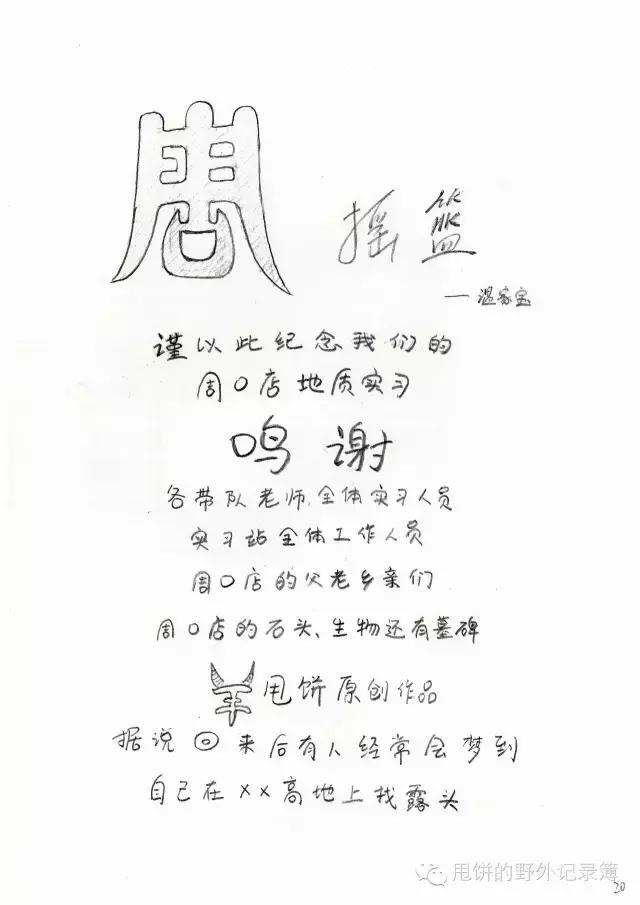 周
摇篮
——温家宝
谨以此纪念我们的
周口店地质实习
鸣谢
各带队老师、全体实习人员
实习站全体工作人员
周口店的父老乡亲们
周口店的石头、生物还有墓碑
羊甩饼原创作品
据说回来后有人经常会梦到
自己在××高地上找露头
甩饼的野外记录簿
20